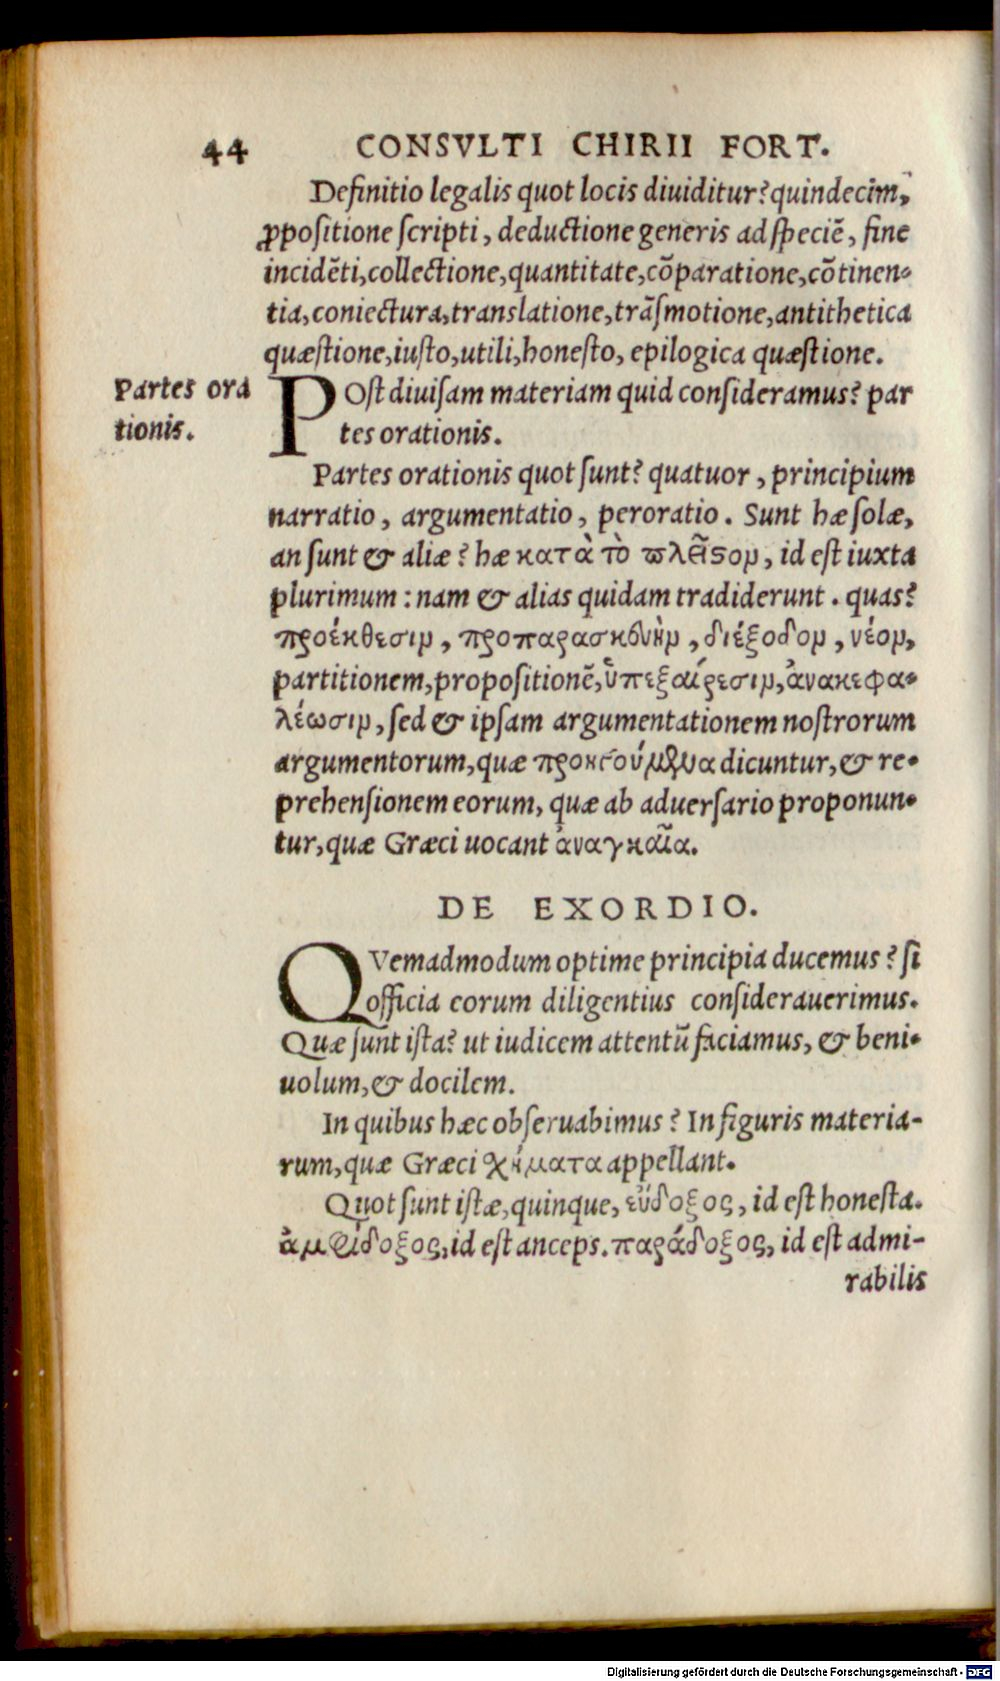 44 CONSVLTI CHIRII FORT.
Definitio legalis quot locis diuiditur? quindecim,
ꝓpositione scripti, deductione generis ad speciē, fine
incidēti, collectione, quantitate, cōparatione, cōtinen-
tia, coniectura, translatione, trāsmotione, antithetica
quæstione, iusto, utili, honesto, epilogica quæstione.
Partes ora
tionis.
POst diuisam materiam quid consideramus? par
tes orationis.
Partes orationis quot sunt? quatuor, principium
narratio, argumentatio, peroratio. Sunt hæ solæ,
an sunt & aliæ? hæ κατὰ τὸ πλεῖϛον, id est iuxta
plurimum: nam & alias quidam tradiderunt. quas?
προέκθεσιν, προπαρασκευὴν, διέξοδον, νέον,
partitionem, propositionē, ὑπεξαίρεσιν, ἀνακεφα-
λέωσιν, sed & ipsam argumentationem nostrorum
argumentorum, quæ προηγούμενα dicuntur, & re-
prehensionem eorum, quæ ab aduersario proponun-
tur, quæ Græci uocant ἀναγκαῖα.
DE EXORDIO.
QVemadmodum optime principia ducemus? si
officia eorum diligentius considerauerimus.
Quæ sunt ista? ut iudicem attentū faciamus, & beni-
uolum, & docilem.
In quibus hæc obseruabimus? In figuris materia-
rum, quæ Græci χήματα appellant.
Quot sunt istæ, quinque, εὔδοξος, id est honesta.
ἀμφίδοξος, id est anceps. παράδοξος, id est admi-
rabilis
Digitalisierung gefördert durch die Deutsche Forschungsgemeinschaft - DFG